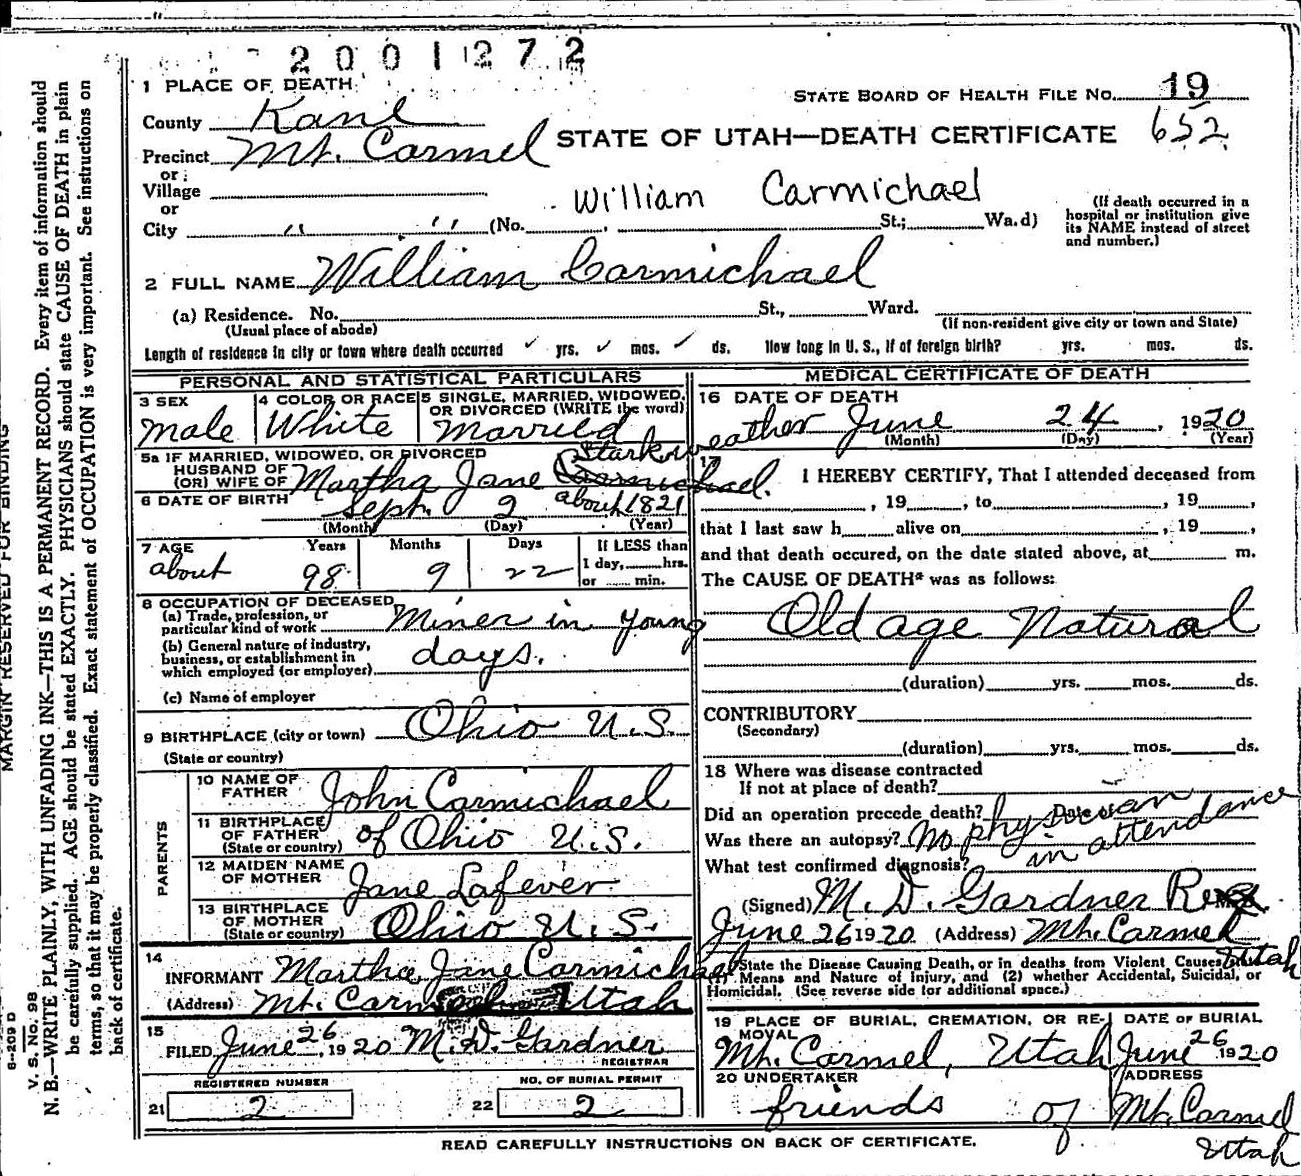 2001272
1 PLACE OF DEATH
STATE BOARD OF HEALTH FILE No. 19
County Kane
STATE OF UTAH—DEATH CERTIFICATE 652
Precinct Mt. Carmel
or
Village
or
William Carmichael
City " " (No. St.; Wa.d)
(If death occurred in a hospital or institution give its NAME instead of street and number.)
2 FULL NAME William Carmichael
(a) Residence. No. St., Ward.
(Usual place of abode)
(If non-resident give city or town and State)
Length of residence in city or town where death occurred ✓ yrs. ✓ mos. ✓ ds. How long in U. S., if of foreign birth? yrs. mos. ds.
PERSONAL AND STATISTICAL PARTICULARS
3 SEX
Male
4 COLOR OR RACE
White
5 SINGLE, MARRIED, WIDOWED,
OR DIVORCED (WRITE the word)
Married
5a IF MARRIED, WIDOWED, OR DIVORCED
HUSBAND OF
(OR) WIFE OF Martha Jane Carmichael. Starkweather
6 DATE OF BIRTH Sept. 2 about 1821
(Month) (Day) (Year)
7 AGE Years Months Days
about 98 9 22
If LESS than
1 day, hrs.
or min.
8 OCCUPATION OF DECEASED
(a) Trade, profession, or
particular kind of work Miner in young
(b) General nature of industry,
business, or establishment in
which employed (or employer) days.
(c) Name of employer
9 BIRTHPLACE (city or town) Ohio U.S.
(State or country)
PARENTS
10 NAME OF
FATHER John Carmichael
11 BIRTHPLACE
OF FATHER
(State or country) of Ohio U.S.
12 MAIDEN NAME
OF MOTHER Jane Lafever
13 BIRTHPLACE
OF MOTHER
(State or country) Ohio U.S.
14
INFORMANT Martha Jane Carmichael
(Address) Mt. Carmel Utah
15
FILED June 26, 1920 M. D. Gardner
REGISTRAR
REGISTERED NUMBER
21 2
NO. OF BURIAL PERMIT
22 2
MEDICAL CERTIFICATE OF DEATH
16 DATE OF DEATH
June 24, 1920
(Month) (Day) (Year)
17
I HEREBY CERTIFY, That I attended deceased from
, 19 , to , 19 ,
that I last saw h alive on , 19 ,
and that death occured, on the date stated above, at m.
The CAUSE OF DEATH* was as follows:
Old age Natural
(duration) yrs. mos. ds.
CONTRIBUTORY
(Secondary)
(duration) yrs. mos. ds.
18 Where was disease contracted
If not at place of death?
Did an operation precede death? Date
Was there an autopsy? No physician
What test confirmed diagnosis? in attendance
(Signed) M. D. Gardner
June 26 1920 (Address) Mt. Carmel
Utah
*State the Disease Causing Death, or in deaths from Violent Causes, state
(1) Means and Nature of Injury, and (2) whether Accidental, Suicidal, or
Homicidal. (See reverse side for additional space.)
19 PLACE OF BURIAL, CREMATION, OR RE-
MOVAL
Mt. Carmel, Utah
DATE OF BURIAL
June 26 1920
20 UNDERTAKER
friends of
ADDRESS
Mt. Carmel
Utah
READ CAREFULLY INSTRUCTIONS ON BACK OF CERTIFICATE.
MARGIN RESERVED FOR BINDING
S-209 D
V. S. No. 98
N. B.—WRITE PLAINLY, WITH UNFADING INK—THIS IS A PERMANENT RECORD. Every item of information should
be carefully supplied. AGE should be stated EXACTLY. PHYSICIANS should state CAUSE OF DEATH in plain
terms, so that it may be properly classified. Exact statement of OCCUPATION is very important. See instructions on
back of certificate.